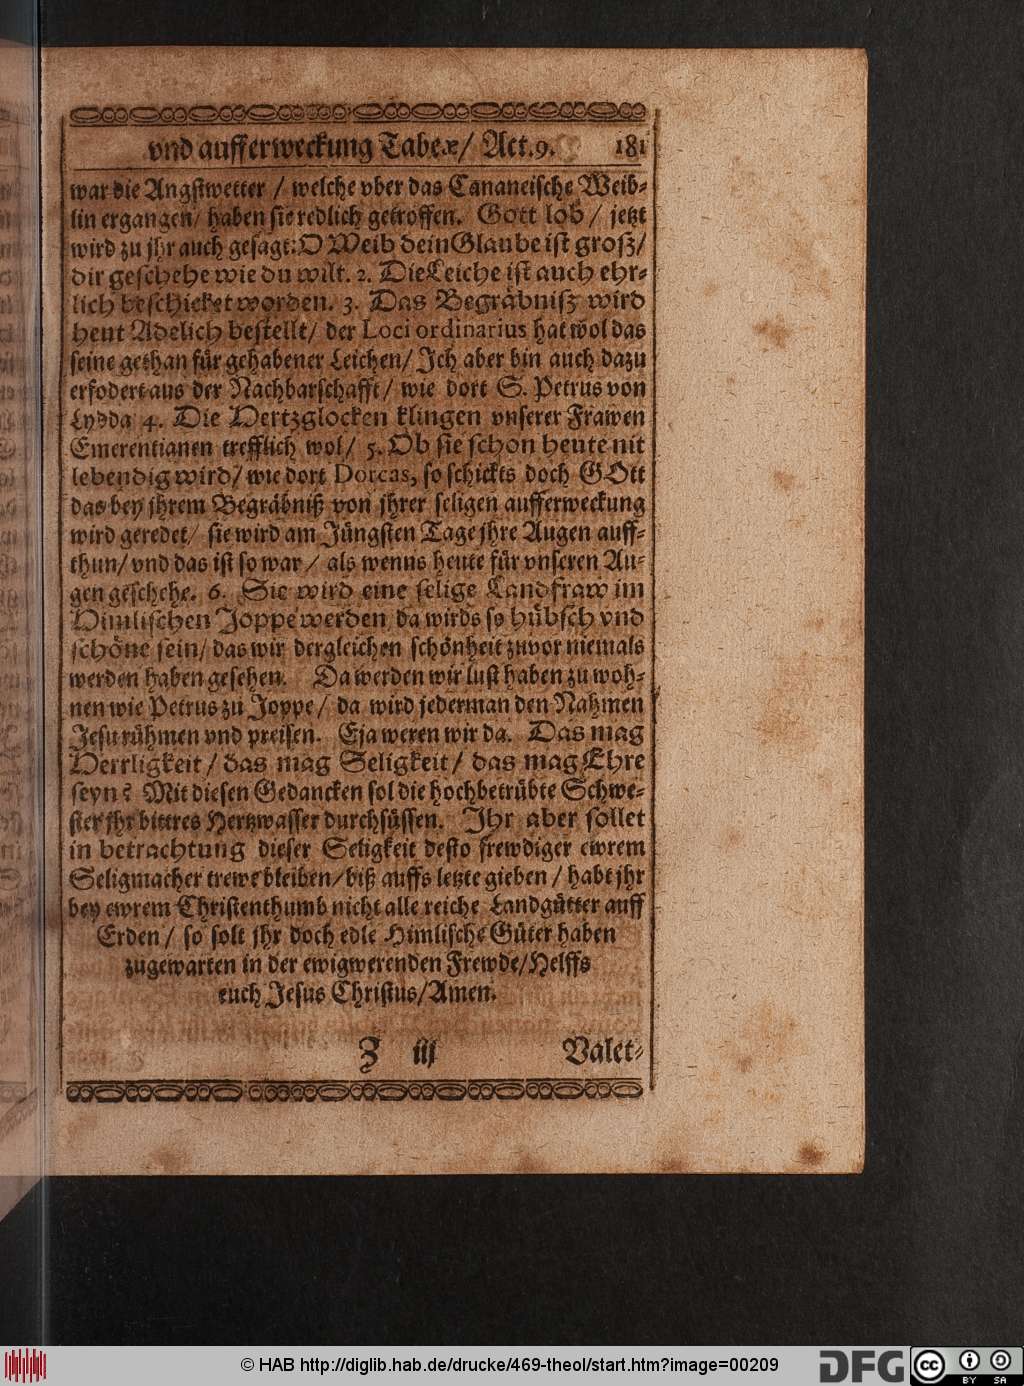 vnd aufferweckung Tabeæ/ Act. 9. 181
war die Angſtwetter / welche vber das Cananeiſche Weib⸗
lin ergangen/ haben ſie redlich getroffen. Gott lob / jetzt
wird zu jhr auch geſagt: O Weib dein Glaube iſt groſz/
dir geſchehe wie du wilt. 2. Die Leiche iſt auch ehr⸗
lich beſchicket worden. 3. Das Begraͤbniſz wird
heut Adelich beſtellt/ der Loci ordinarius hat wol das
ſeine gethan fuͤr gehabener Leichen/ Ich aber bin auch dazu
erfodert aus der Nachbarſchafft / wie dort S. Petrus von
Lydda 4. Die Hertzglocken klingen vnſerer Frawen
Emerentianen trefflich wol/ 5. Ob ſie ſchon heute nit
lebendig wird/ wie dort Dorcas, ſo ſchickts doch GOtt
das bey jhrem Begraͤbniß von jhrer ſeligen aufferweckung
wird geredet/ ſie wird am Juͤngſten Tage jhre Augen auff⸗
thun/ vnd das iſt ſo war / als wenns heute fuͤr vnſeren Au⸗
gen geſchehe. 6. Sie wird eine ſelige Landfraw im
Himliſchen Joppe werden da wirds ſo huͤbſch vnd
ſchoͤne ſein/ das wir dergleichen ſchoͤnheit zuvor niemals
werden haben geſehen. Da werden wir luſt haben zu woh⸗
nen wie Petrus zu Joppe/ da wird jederman den Nahmen
Jeſu ruͤhmen vnd preiſen. Eja weren wir da. Das mag
Herrligkeit / das mag Seligkeit / das mag Ehre
ſeyn? Mit dieſen Gedancken ſol die hochbetruͤbte Schwe⸗
ſter jhr bittres Hertzwaſſer durchſuͤſſen. Ihr aber ſollet
in betrachtung dieſer Seligkeit deſto frewdiger ewrem
Seligmacher trewe bleiben/ biß auffs letzte gieben / habt jhr
bey ewrem Chriſtenthumb nicht alle reiche Landguͤtter auff
Erden / ſo ſolt jhr doch edle Himliſche Guͤter haben
zugewarten in der ewigwerenden Frewde/ Helffs
euch Jeſus Chriſtus/ Amen.
Z iij Valet⸗
© HAB http://diglib.hab.de/drucke/469-theol/start.htm?image=00209
DFG cc BY SA